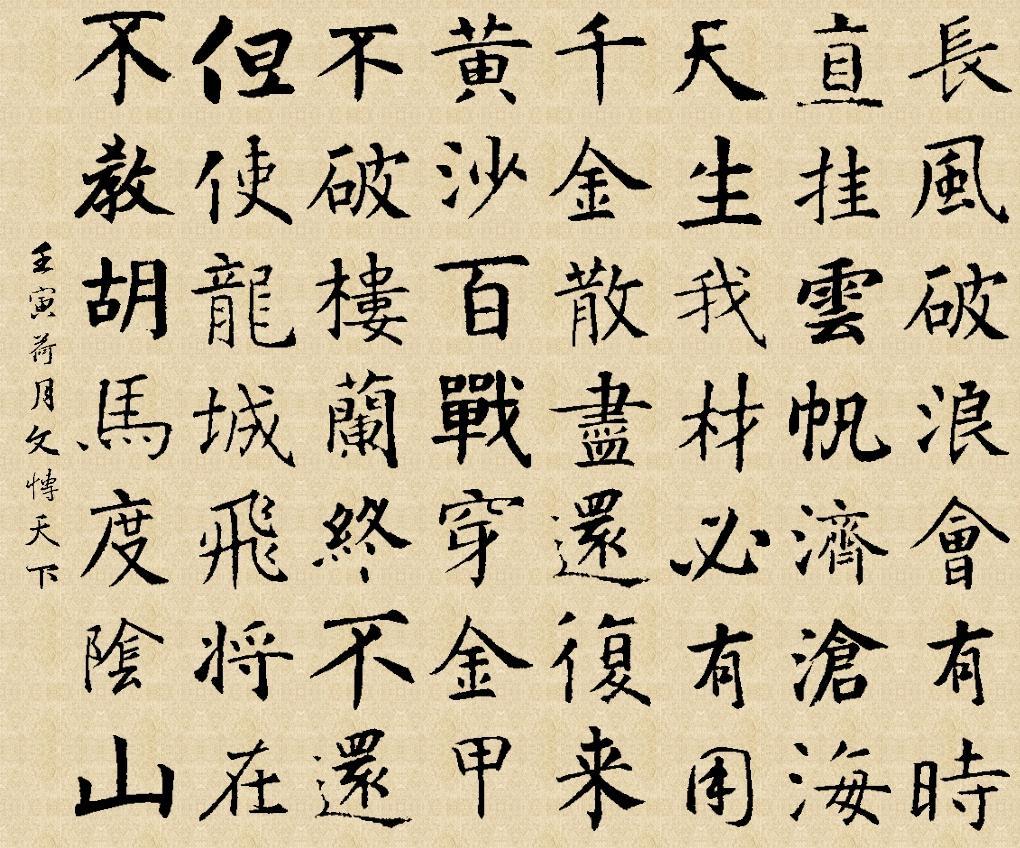 長風破浪會有時
直挂雲帆濟滄海
天生我材必有用
千金散盡還復来
黃沙百戰穿金甲
不破樓蘭終不還
但使龍城飛将在
不教胡馬度陰山
壬寅荷月文博天下